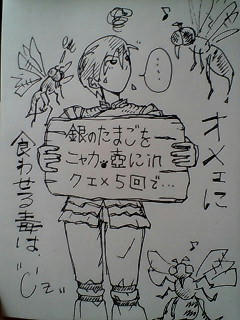 ・・・・
銀のたまごを
ニャカ壺にin
クエ×5回で…
オメェに
食わせる毒は
"じぇ"